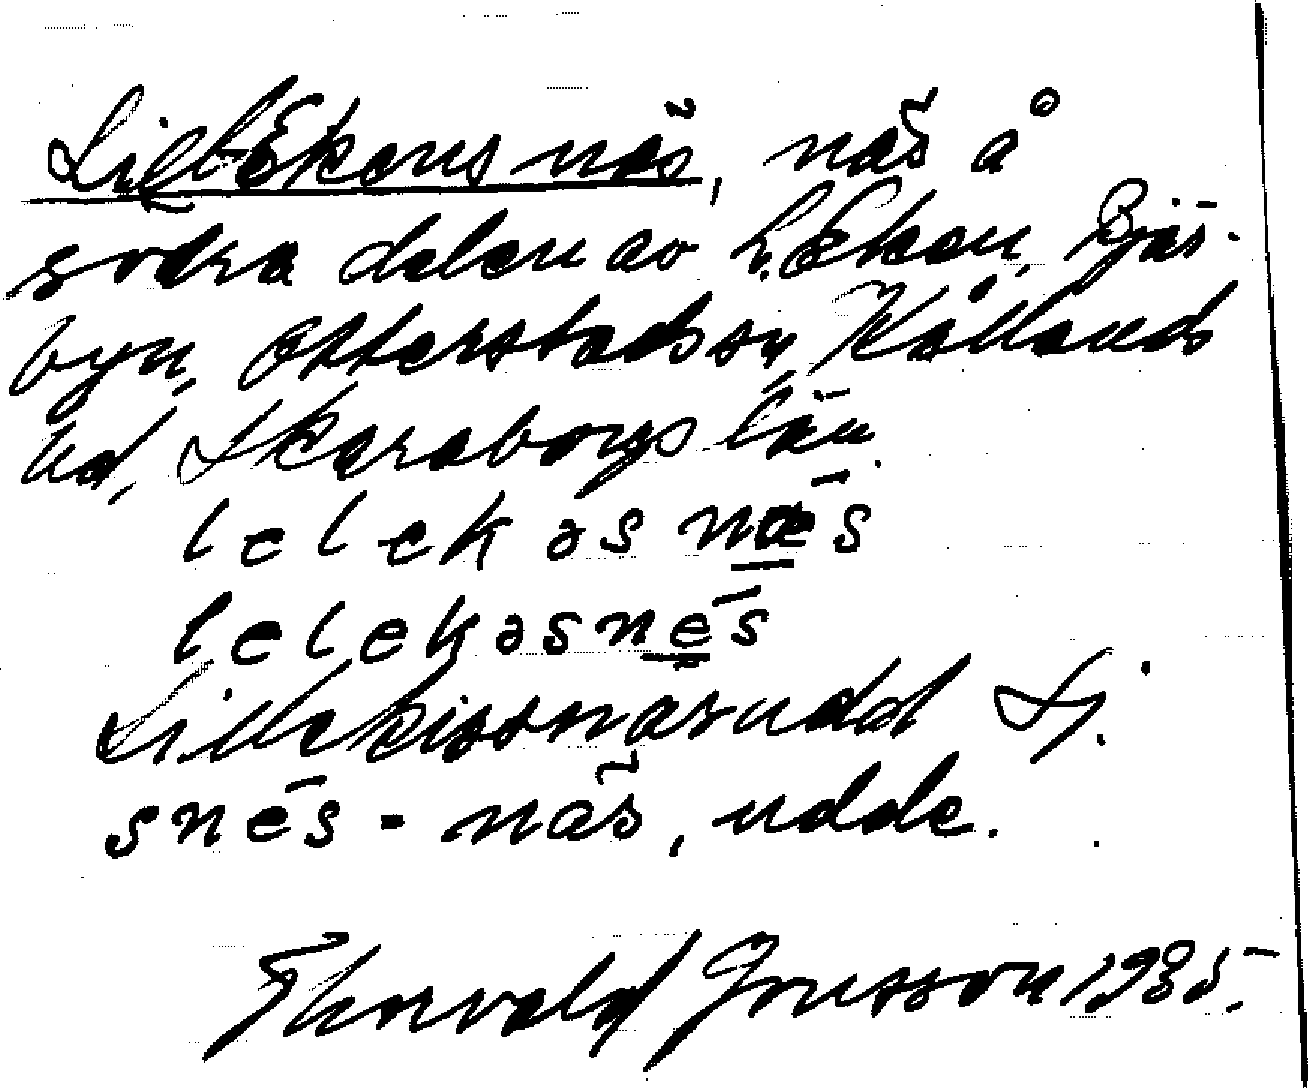 Lill-Ekens näs, näs å
södra delen av L. Eken, Bjär-
byn, Otterstads sn, Kållands
hd, Skaraborgs län.
lelekəsnēs
lelekəsnēs
Lillekissnäsudd Sj.
snēs - näs, udde.
Thorvald Jonsson 1935.